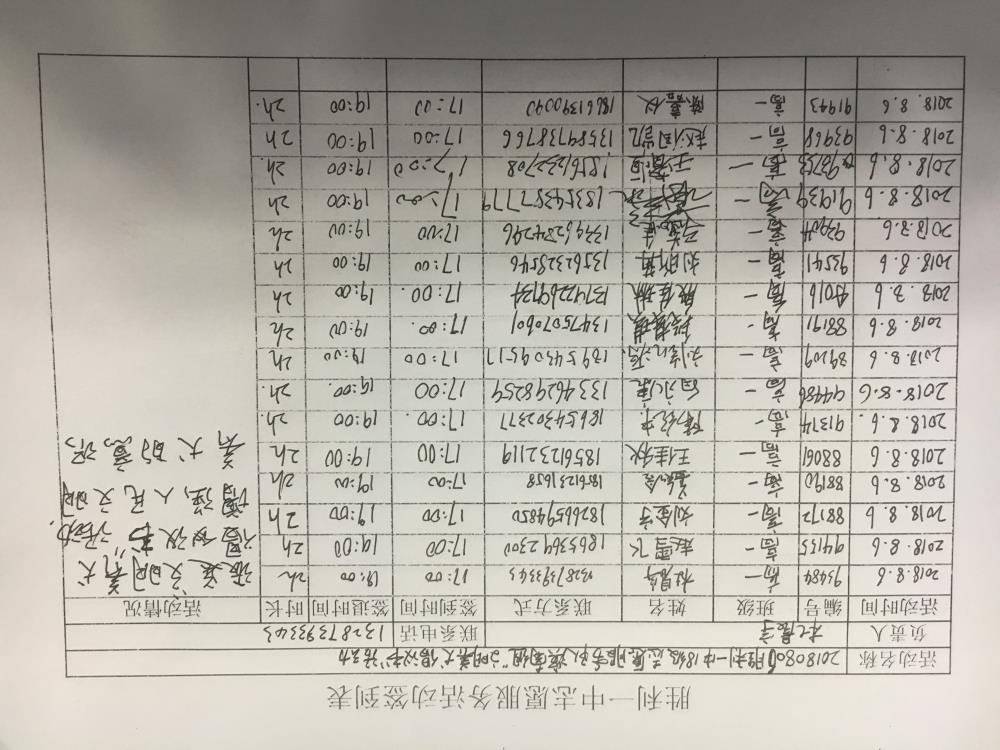 胜利一中志愿服务活动签到表
活动名称 20180806胜利一中18级志愿服务队 "文明养犬"倡议书活动
负责人 联系电话 13287393343
活动时间 编号 班级 姓名 联系方式 签到时间 签退时间 时长 活动情况
2018.8.6 93484 高一 13287393343 17:00 19:00 2h
2018.8.6 94135 高一 赵雪飞 18653692300 17:00 19:00 2h
2018.8.6 88172 高一 刘金宇 18266594850 17:00 19:00 2h
2018.8.6 88190 高一 18561231658 17:00 19:00 2h
2018.8.6 88061 高一 王佳秋 18561232119 17:00 19:00 2h
2018.8.6 91374 高一 18654302377 17:00 19:00 2h
2018.8.6 94486 高一 13346298259 17:00 19:00 2h
2018.8.6 89209 高一 18954309517 17:00 19:00 2h
2018.8.6 88191 高一 13475070601 17:00 19:00 2h
2018.8.6 高一 殷佳琳 13792269724 17:00 19:00 2h
2018.8.6 93541 高一 刘昕苒 13562328546 17:00 19:00 2h
2018.8.6 高一 13346284296 17:00 19:00 2h
2018.8.6 91939 高一 18354387779 17:00 19:00 2h
2018.8.6 高一 18561232708 17:00 19:00 2h
2018.8.6 93968 高一 赵润凯 13589938766 17:00 19:00 2h
2018.8.6 91943 高一 陈嘉仪 18661390090 17:00 19:00 2h
张义文明养犬
倡议书活动.
增强人民文明
养犬的意识.